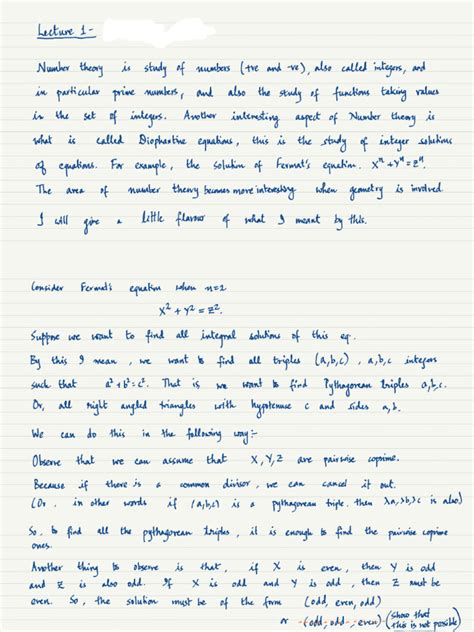 Lecture 1-
Number theory is study of numbers (+ve and -ve), also called integers, and
in particular prime numbers, and also the study of functions taking values
in the set of integers. Another interesting aspect of Number theory is
what is called Diophantine equations, this is the study of integer solutions
of equations. For example, the solution of Fermat's equation. xⁿ+yⁿ=zⁿ.
The area of number theory becomes more interesting when geometry is involved.
I will give a little flavour of what I meant by this.
Consider Fermat's equation when n=2
x²+y²=z².
Suppose we want to find all integral solutions of this eq.
By this I mean, we want to find all triples (a,b,c), a,b,c integers
such that a²+b²=c². That is we want to find Pythagorean triples a,b,c.
Or, all right angled triangles with hypotenuse c and sides a,b.
We can do this in the following way:-
Observe that we can assume that X,Y,Z are pairwise coprime.
Because if there is a common divisor, we can cancel it out.
(Or, in other words if (a,b,c) is a pythagorean triple, then λa,λb,λc is also)
So, to find all the pythagorean triples, it is enough to find the pairwise coprime
ones.
Another thing to observe is that, if X is even, then Y is odd
and Z is also odd. If X is odd and Y is odd, then Z must be
even. So, the solution must be of the form (odd, even, odd)
or (odd, odd, even) (show that
this is not possible)